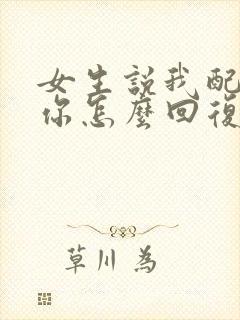 女生説我配
你怎麼回復
草川 為